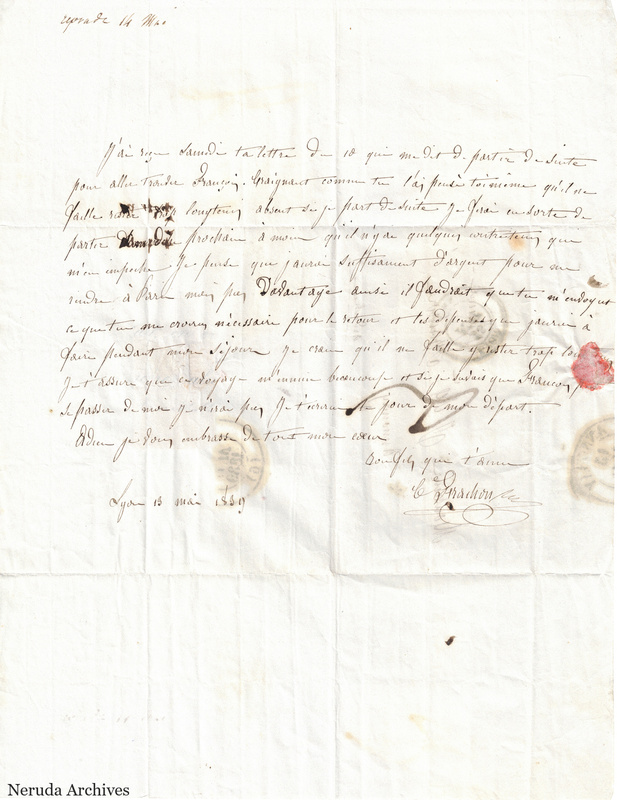 14 Mai
J'ai reçu Samedi ta lettre du 10 qui me dit de partir de suite
pour aller François. Craignant comme tu l'as pensé toi même qu'il ne
faille longtems absent si je part de suite je ferai en sorte de
partir prochain à moins qu'il n'y ai quelques que
m'en empeche je pense que j'aurai suffisament d'argent pour me
rendre à Paris mais pas Davantage ainsi il faudrait que tu m'
ce que tu me croiras nécessaire pour le retour et les dépenses que j'aurai à
faire pendant mon séjour je crain qu'il ne faille y rester trop
Je t'assure que ce voyage m'ennui beaucoup et si je savais que François
se passer de moi je n'irai pas je t'écrirai le jour de mon départ.
Adieu je vous embrasse de tout mon cœur
ton fils qui t'aime
Lyon 13 mai 1839
Neruda Archives